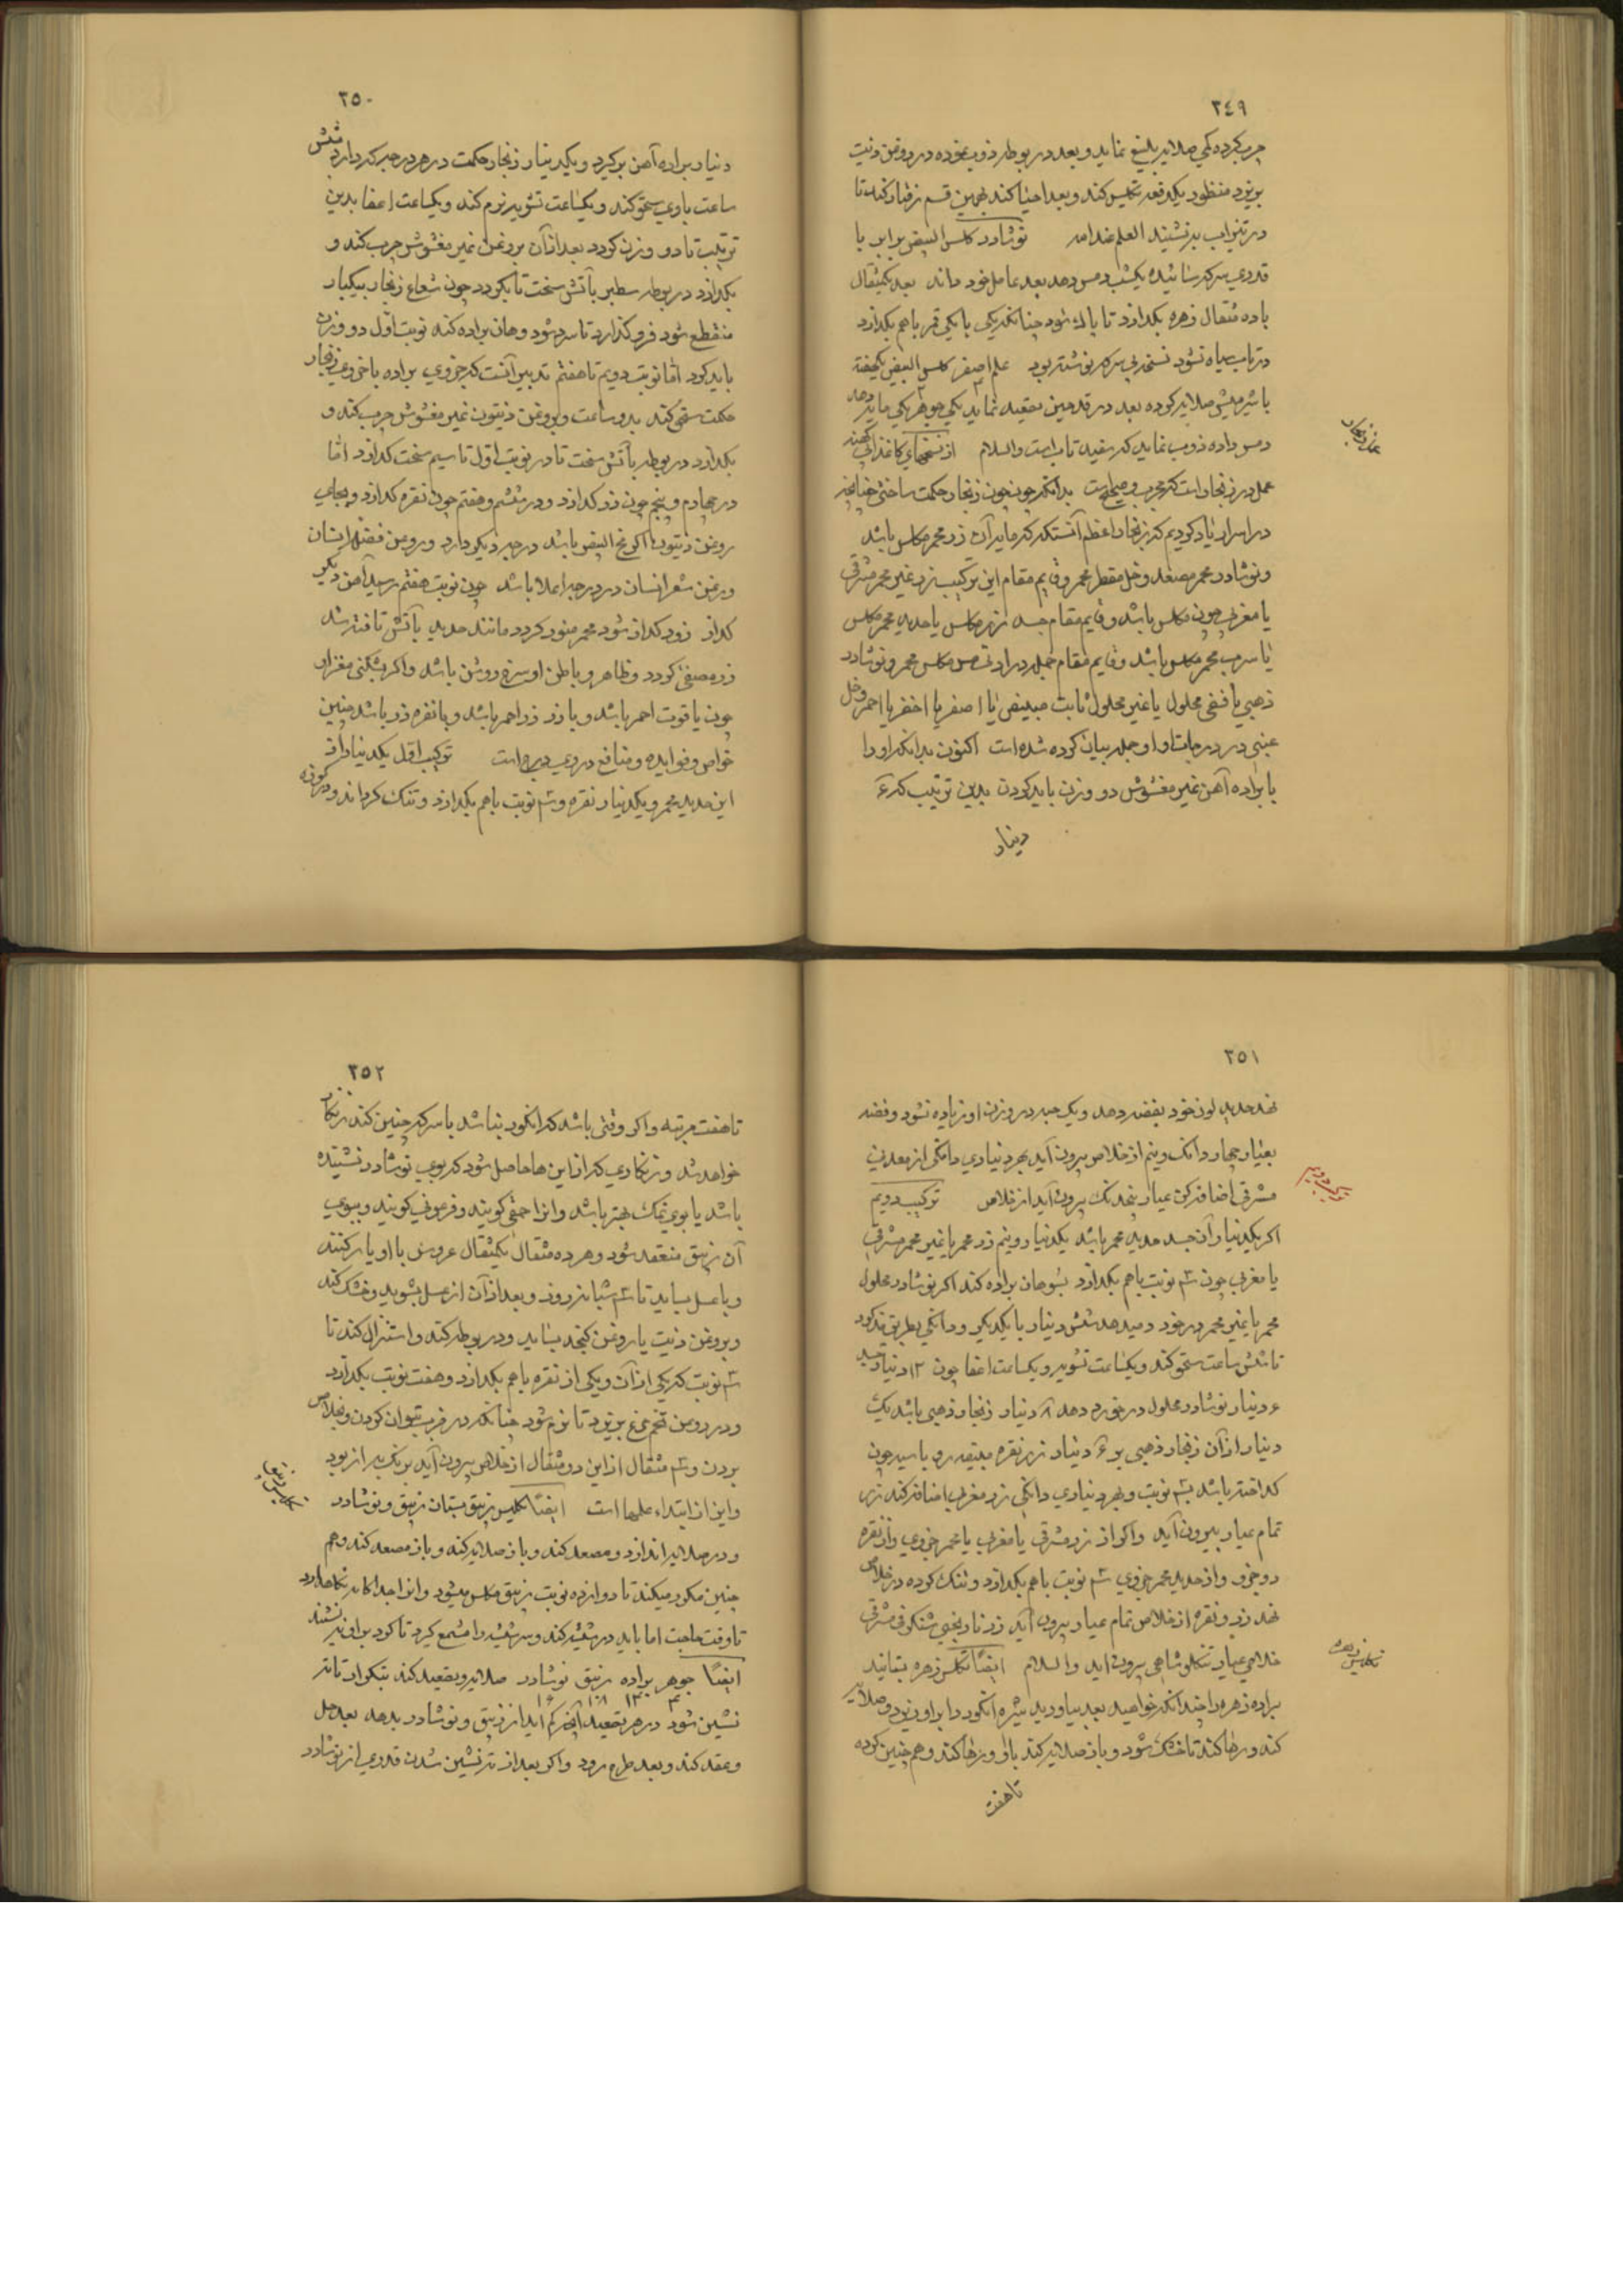 ٢٤٩
چرب کرده کمی صلایه بلیغ نماید و بعد در بوطه ذوب نموده در روغن زیت
بریزد منظور یکدفعه تکلیس کند و بعد احیا کند بهمین قسم رفتار کند تا
در تیزاب بر نشیند العلم عند الله نوشادر کلس البیض برابر با
قدری سرکه سائیده یکشب دمس دهد بعد عامل خود داند بعد یکمثقال
با ده مثقال زهره بکدازد تا پاک شود چنانکه یکی با یکی قمر باهم بکدازد
در تاب سیاه نشود نسخه بی سرکه نوشته بود علم اصفر کلس البیض یکهفته
با شیر میش صلایه کرده بعد در قدحین تصعید نماید یکی جوهر یکی ماند دهد
دمس داده ذوب نماید که سفید تاب است والسلام از نسخهای کاغذ کهنه
عمل در زنجار است که مجرب و صحیح است بدانکه چون زنجار حکمت ساختی چنانچه
در اسرار یاد کردیم که زنجار اعظم آنستکه که مایه آن زر محمر مکلس باشد
و نوشادر محمر مصعد و خل مقطر محمر و قایم مقام این ترکیب زر غیر محمر مشرقی
یا مغربی چون مکلس باشد و قایم مقام جسد زر مکلس یا حدید محمر مکلس
یا سرب محمر مکلس باشد و قایم مقام جمله در او نحاس مکلس محمر و نوشادر
ذهبی یا فضی محلول یا غیر محلول ثابت مبیض یا اصفر یا اخضر یا احمر و خل
عنبی در درجات او او جمله بیان کرده شده است اکنون بدانکه او را
با براده آهن غیر مغشوش دو وزن باید کردن بدین ترتیب که ٤
دینار
٢٥٠
دنیار براده آهن بر کیرد و یکدینار زنجار حکمت در هر درجه که دارد شش
ساعت با وی سحق کند و یکساعت تشویه نرم کند و یکساعت اعفا بدین
ترتیب تا دو وزن کردد بعد از آن بروغن غیر مغشوش چرب کند و
بکدازد در بوطه سطبر بآتش سخت تا بکردد چون شعاع زنجار بیکبار
منقطع شود فرو کذارد تا سرد شود و همان براده کند نوبت اوّل دو وزن
باید کرد امّا نوبت دویم تا هفتم تدبیر آنست که جزوی براده با جزوی زنجار
حکمت سحق کند بدو ساعت و بروغن زیتون غیر مغشوش چرب کند و
بکدازد در بوطه بآتش سخت تا در نوبت اوّل تا سیم سخت کدازد امّا
در چهارم و پنجم چون زر کدازد و در ششم و هفتم چون نقره کدازد و بجای
روغن زیتون اکر مخ البیض باشد درجه دیکر دارد و روغن فضله انسان
و روغن شعر انسان در درجه اعلا باشد چون نوبت هفتم رسید آهن دیکر
کداز زود کداز شود محمر منور کردد مانند حدید بآتش تافته شد
زر مصفی کردد و ظاهر و باطن او سرخ و روشن باشد و اکر بشکنی مغز او
چون یاقوت احمر باشد و با زر زر احمر باشد و با نقره زر باشد چنین
خواص و فوایده و منافع در وی درجه است ترکیب اوّل یکدینار از
این حدید محمر و یکدینار نقره و سه نوبت باهم بکدازد و تنک کرداند و در کوزه
٢٥١
نهد حدید لون خود بفضه دهد و یک حبه در وزن او زیاده نشود و فضه
بعیار چهار دانک و نیم از خلاص بیرون آید بهر دنیاری دانکی از معدنی
مشرقی اضافه کن عیار پنجدانک بیرون آید از خلاص ترکیب دویم
اکر یکدنیار از آن جسد حدید محمر باشد یکدنیار و نیم زر محمر یا غیر محمر مشرقی
یا مغربی چون سه نوبت باهم بکدازد بسوهان براده کند اکر نوشادر محلول
محمر یا غیر محمر در خورد میدهد شش دینار با یکدیکر و دانکی بطریق مذکور
تا شش ساعت سحق کند و یکساعت تشویه و یکساعت اعفا چون ١٢ دنیار جسد
٤ دینار نوشادر محلول در خورد دهد ٨ دنیار زنجار ذهبی باشد یک
دینار از آن زنجار ذهبی بر ٤ دنیار زر نقره مبیضه رو با سپید چون
کداخته باشد سه نوبت و بهر دنیاری دانکی زر مغربی اضافه کند زر
تمام عیار بیرون آید و اکر از زر مشرقی یا مغربی یا محمر جزوی و از نقره
دو جزو و از حدید محمر جزوی سه نوبت باهم بکدازد و تنک کرده در خلاص
نهد زر و نقره از خلاص تمام عیار بیرون آید زر نارنجی شنکرفی مشرقی
خلاصی عیار تنکه شاهی بیرون اید والسلام ایضاً تکلس زهره بستانید
براده زهره را چندانکه خواهید بعد بیاورید شیره انکور را بر او ریزد و صلایه
کند و رها کند تا خشک شود و باز صلایه کند با او و رها کند و همچنین کرده
تا هفت
ترکیب دویم
تکلیس زهره
٢٥٢
تا هفت مرتبه و اکر وقتی باشد که انکور نباشد با سرکه چنین کند زنکار
خواهد شد و زنکاری که از این ها حاصل شود که بوی نوشادر نشنیده
باشد یا بوی نمک بهتر باشد و انرا حمقی کویند و فرعونی کویند و ببوی
آن زیبق منعقد شود و هر ده مثقال یکمثقال عروس با او یار کنند
و با عسل بساید تا سه شبانروز و بعد از آن از عسل بشوید و خشک کند
و بروغن زیت یا روغن کنجد بساید و در بوطه کند و استنزال کند تا
سه نوبت که یکی از آن و یکی از نقره باهم بکدازد و هفت نوبت بکدازد
و در روغن تخم مرغ بریزد تا نرم شود چنانکه در ضرب بتوان کردن و بخلاص
بردن و سه مثقال از این دو مثقال از خلاص بیرون آید برنک سر از بود
و این از ابتداء علمها است ایضاً تکلیس زیبق بستان زیبق و نوشادر
و در صلایه اندازد و مصعد کند و باز صلایه کند و باز مصعد کند و هم
چنین مکرر میکند تا دوازده نوبت زیبق مکلس میشود و انرا جدا کانه نکاهدارد
تا وقت حاجت اما باید در شیشه کند و سر شیشه را مشمع کیرد تا کرد بر او ننشیند
ایضاً جوهر براده زیبق نوشادر صلایه و تصعید کند بتکرار تا ته
نشین شود در هر تصعید آنچه کم اید از زیبق و نوشادر بدهد بعد حل
و عقد کند و بعد طرح رود و اکر بعد از ته نشین شدن قدری از نوشادر